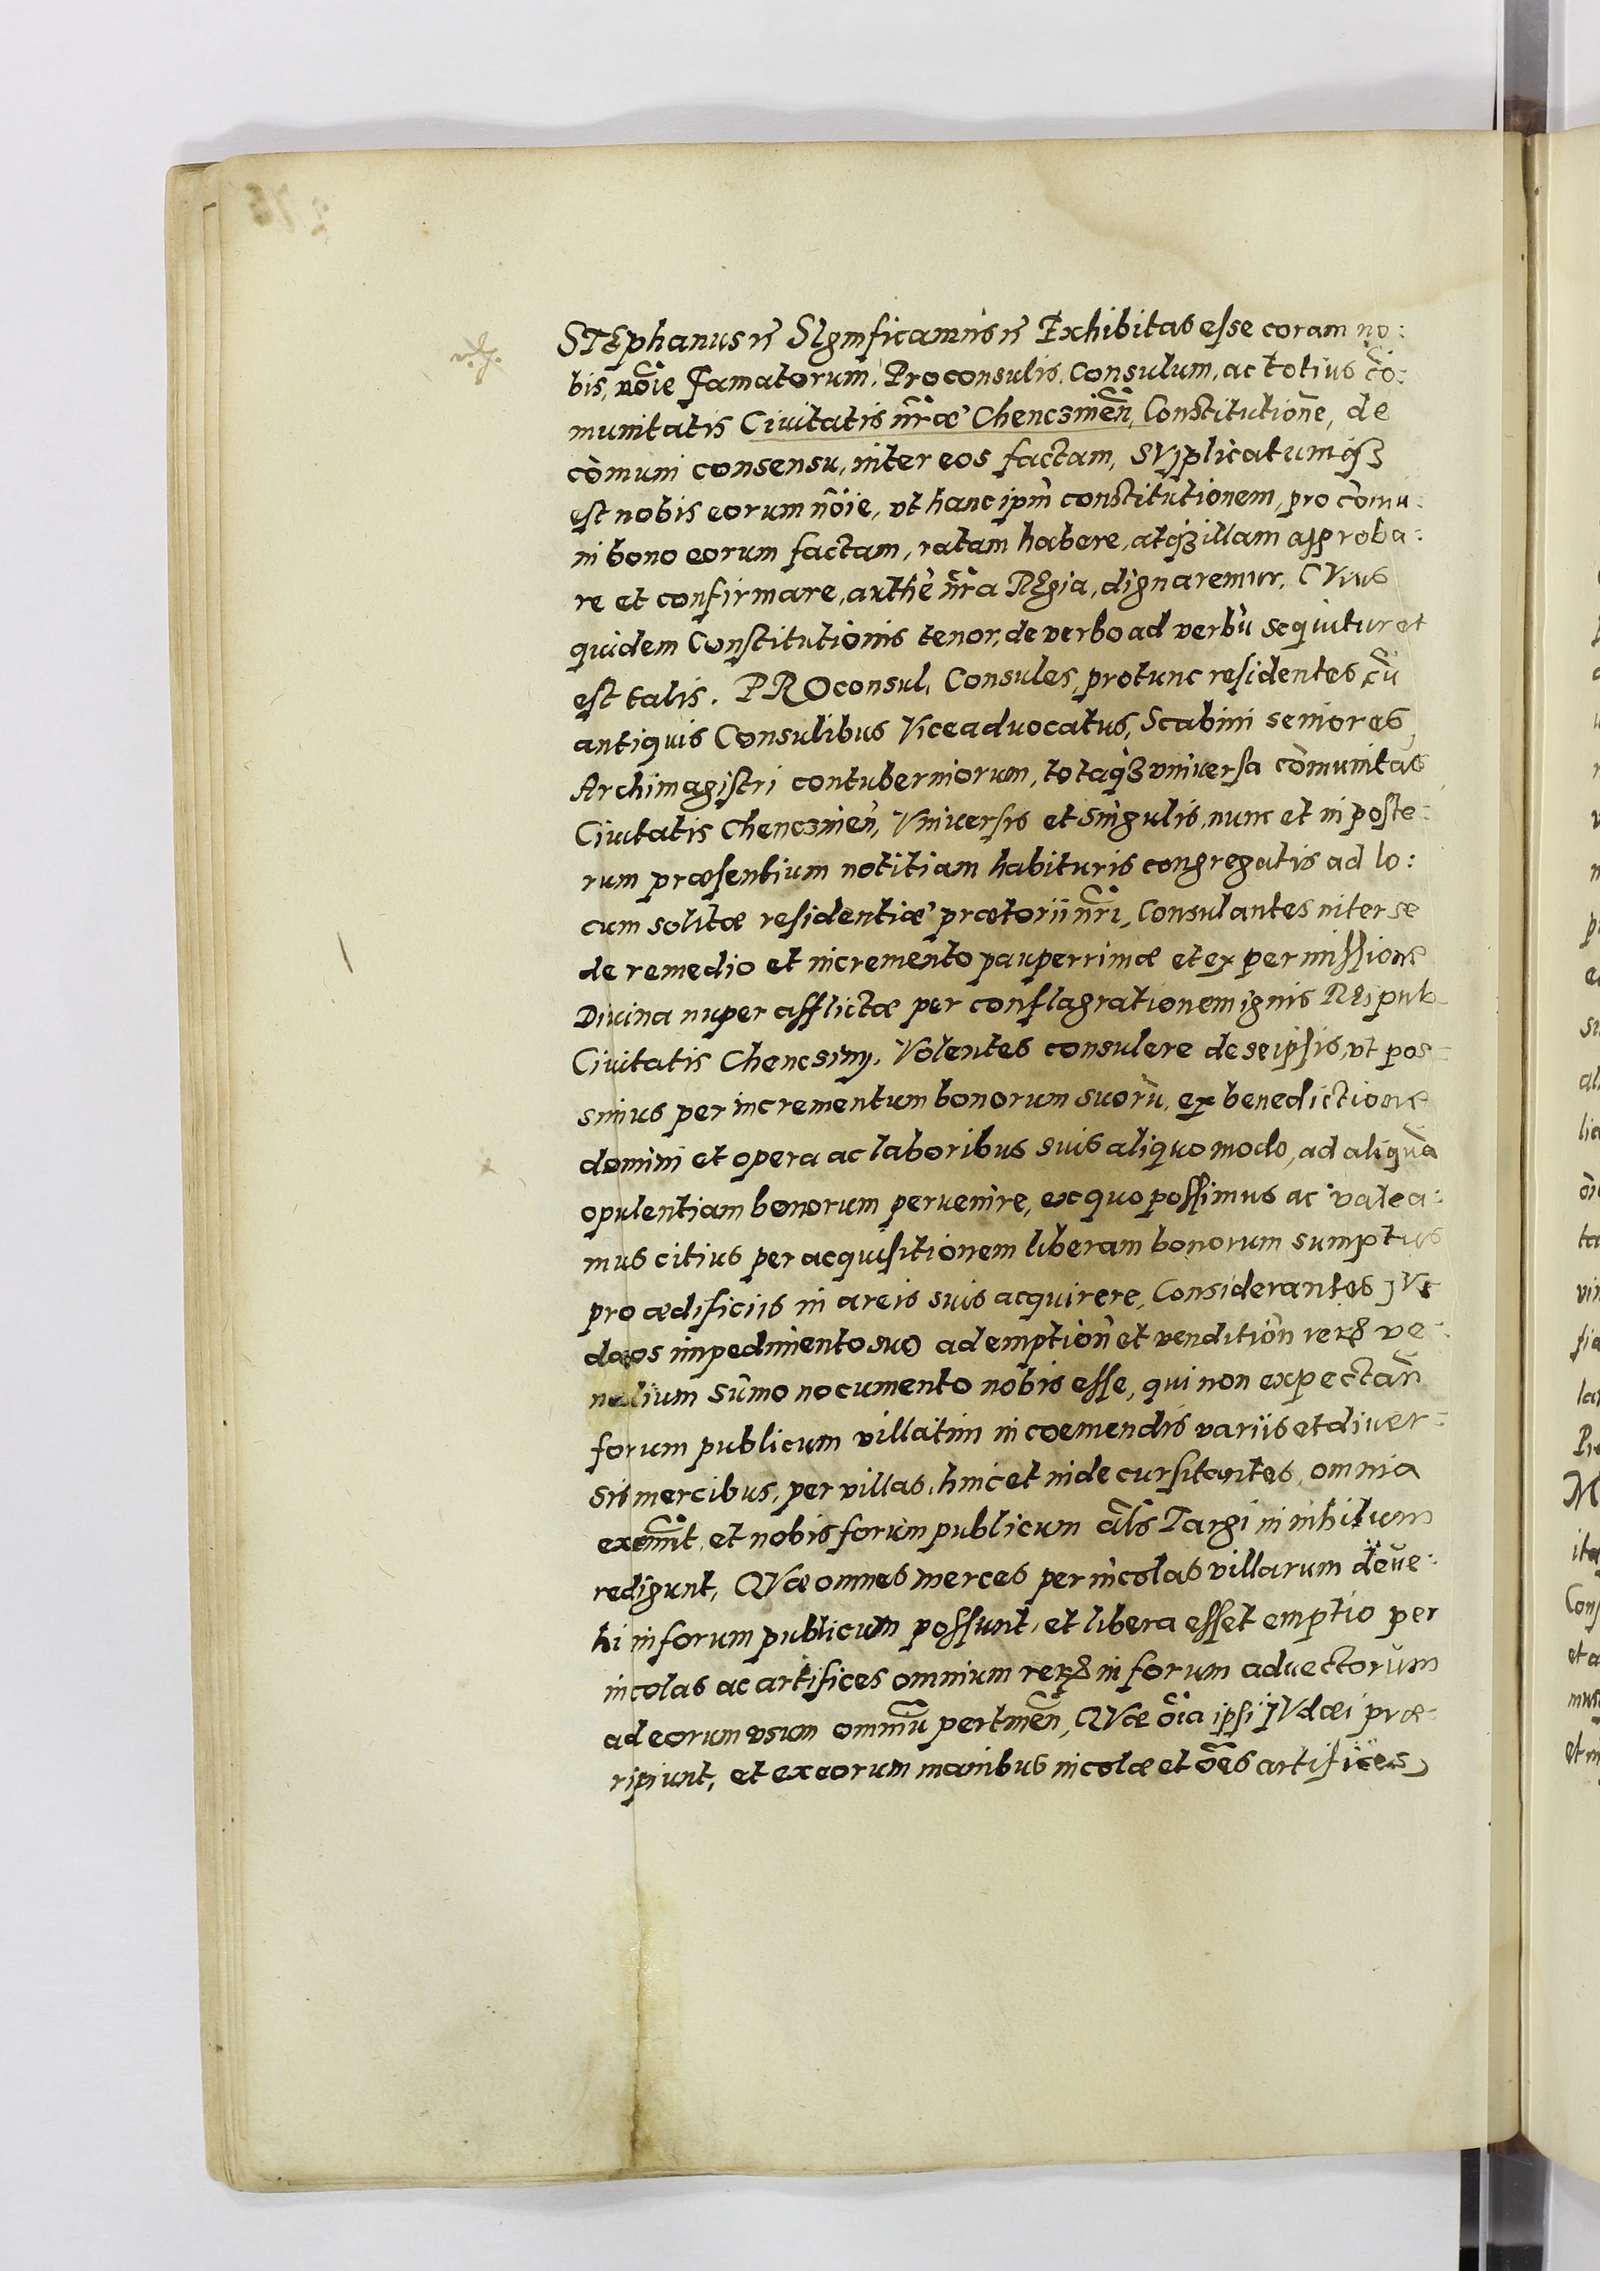 STEphanus rc SIgnificamus rc Exhibitas esse coram no:
bis, nôie Famatorum, Proconsulis, Consulum, ac totius cô:
munitatis Ciuitatis nr̃æ Chenczineñ, Constitutione, de
cõmuni consensu, inter eos factam, SVpplicatumqȝ
est nobis eorum nôie, vt hanc ipm̃ constitutionem, pro cõmu:
ni bono eorum factam, ratam habere, atqȝ illam approba:
re et confirmare, authẽ nr̃a REgia, dignaremur. CVius
quidem Constitutionis tenor, de verbo ad verbũ sequitur et
est talis. PROconsul, Consules, protunc residentes cũ
antiquis Consulibus Viceaduocatus, Scabini seniores,
Archimagistri contuberniorum, totaqȝ vniuersa cõmunitas
Ciuitatis Chencznieñ, Vniuersis et singulis, nunc et in poste:
rum præsentium notitiam habituris congregatis ad lo:
cum solitæ residentiæ prætorii nr̃i, Consulantes inter se
de remedio et incremento pauperrimæ et ex permissione
Diuina nuper afflictæ per conflagrationem ignis REipub
Ciuitatis Chencziny. Volentes consulere de seipsis, vt pos=
simus per incrementum bonorum suorũ, ex benedictione
domini et opera ac laboribus suis aliquo modo, ad aliquã
opulentiam bonorum peruenire, ex quo possimus ac valea:
mus citius per acquisitionem liberam bonorum sumptus
pro ædificiis in areis suis acquirere, Considerantes JVs
dæos impedimento suo ad emptioñ et venditioñ rerꝝ ve:
nalium sũmo nocumento nobis esse, qui non expectañ
forum publicum villatim in coemendis variis et diuer=
sis mercibus, per villas, hinc et inde cursitantes, omnia
exemũt, et nobis forum publicum als̃ Targi in nihilum
redigunt, QVæ omnes merces per incolas villarum deue:
hi in forum publicum possunt, et libera esset emptio per
incolas ac artifices omnium rerꝝ in forum aduectorum
ad eorum vsum omniũ pertineñ, QVæ õia ipsi JVdæi præ
ripiunt, et ex eorum manibus incolæ et ões artifices